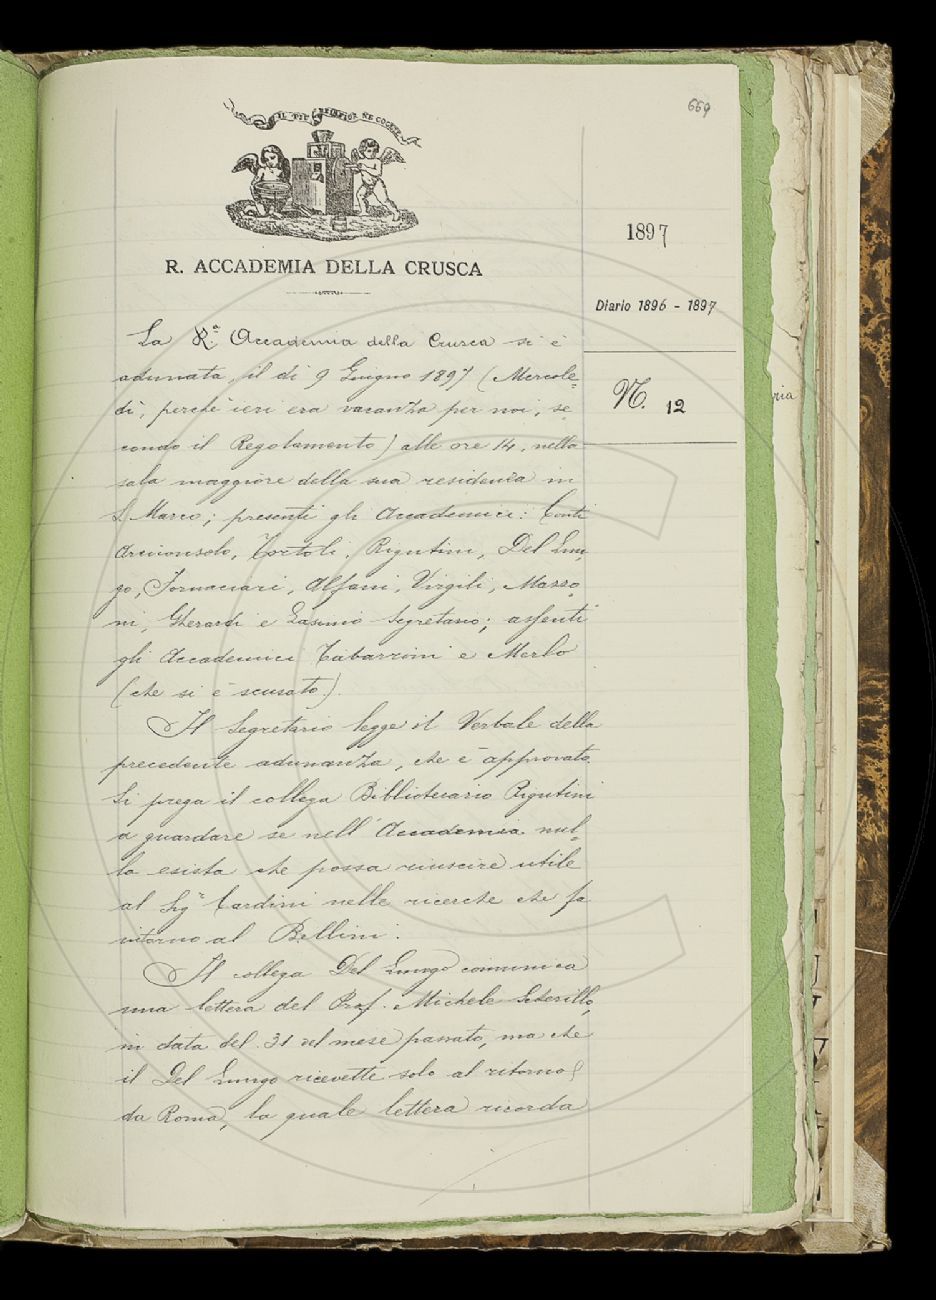 669
IL PIÙ BEL FIOR NE COGLIE
R. ACCADEMIA DELLA CRUSCA
1897
Diario 1896 - 1897
N. 12
La R.ª Accademia della Crusca si è
adunata il dì 9 Giugno 1897 (Mercole=
dì, perchè ieri era vacanza per noi, se=
condo il Regolamento) alle ore 14, nella
sala maggiore della sua residenza in
S. Marco; presenti gli Accademici: Conti
Arciconsolo, Tortoli, Rigutini, Del Lun,
go, Fornaciari, Alfani, Virgili, Mazzo,
ni, Gherardi e Lasinio Segretario; assenti
gli Accademici Tabarrini e Merlo
(che si è scusato).
Il Segretario legge il Verbale della
precedente adunanza, che è approvato.
Si prega il collega Bibliotecario Rigutini
a guardare se nell'Accademia nul=
la esista che possa riuscire utile
al Sigr Cardini nelle ricerche che fa
intorno al Bellini.
Il collega Del Lungo comunica
una lettera del Prof. Michele Scherillo,
in data del 31 del mese passato, ma che
il Del Lungo ricevette solo al ritorno
da Roma, la quale lettera ricorda
ria